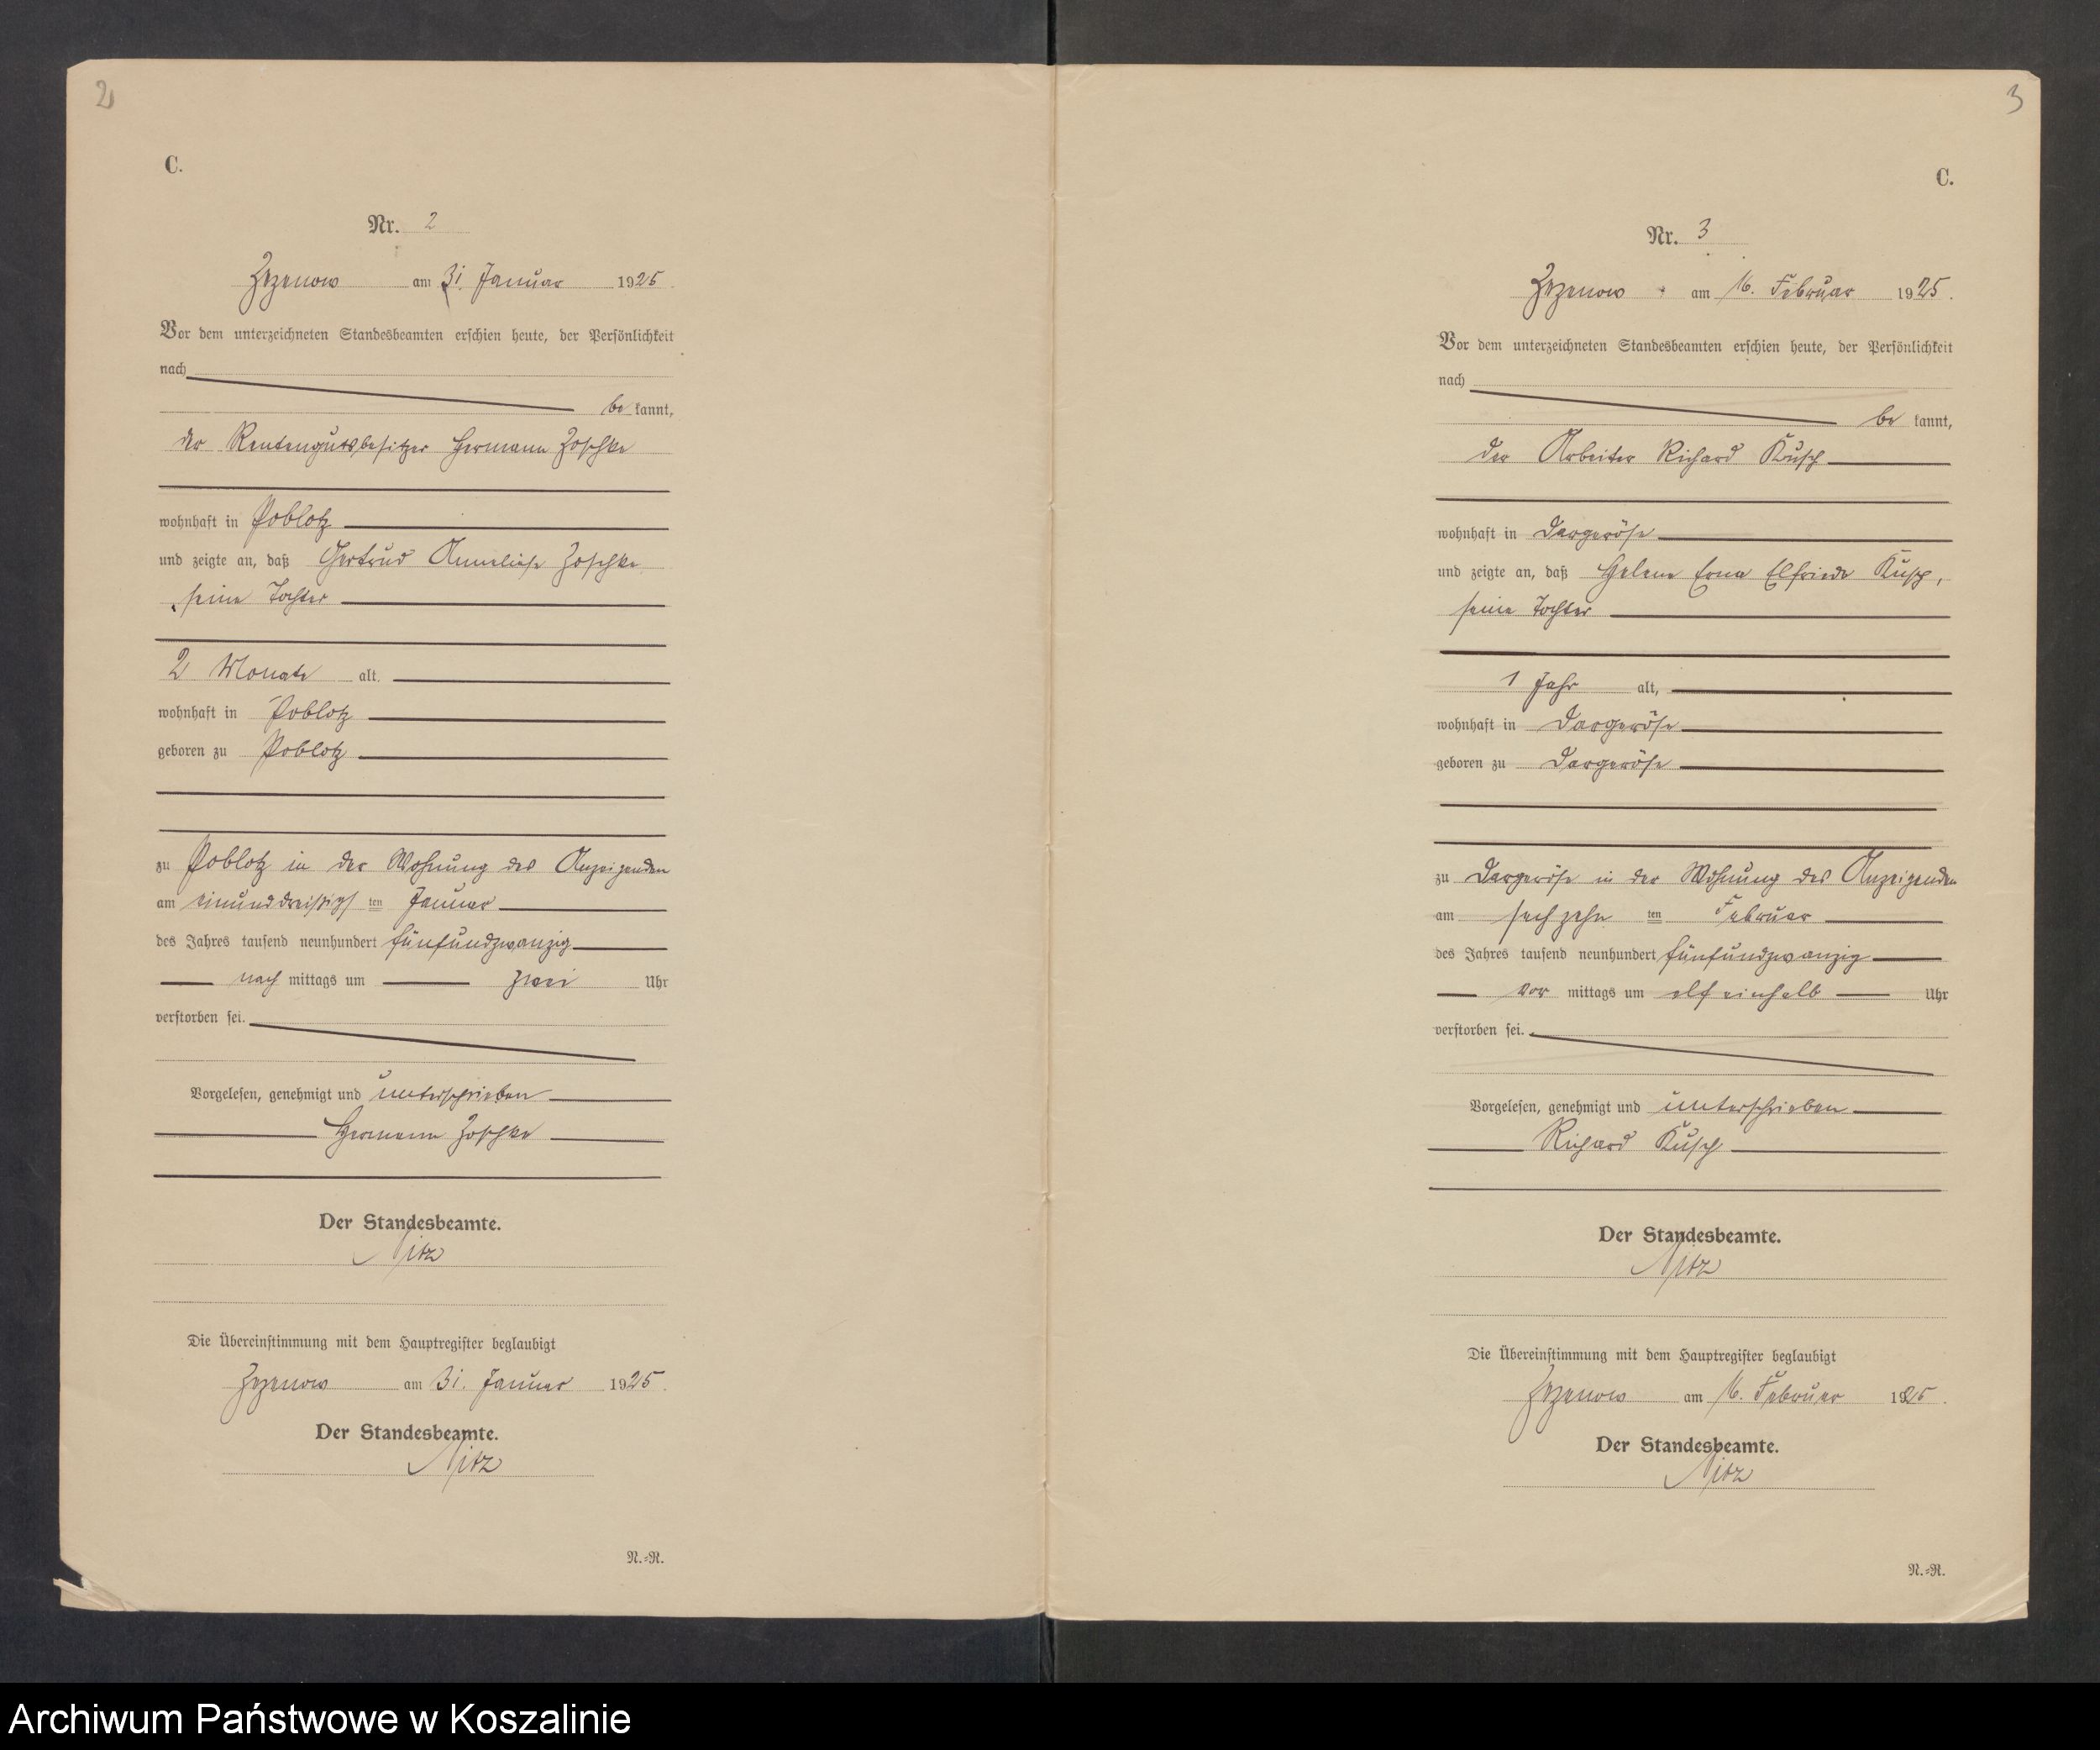 2
C.
Nr. 2
Zezenow am 31. Januar 1925.
Vor dem unterzeichneten Standesbeamten erschien heute, der Persönlichkeit
nach
be kannt,
der Rentengutsbesitzer Hermann Zoschke
wohnhaft in Poblotz
und zeigte an, daß Gertrud Anneliese Zoschke
seine Tochter
2 Monate alt.
wohnhaft in Poblotz
geboren zu Poblotz
zu Poblotz in der Wohnung des Anzeigenden
am einunddreißigs ten Januar
des Jahres tausend neunhundert fünfundzwanzig
nach mittags um zwei Uhr
verstorben sei.
Vorgelesen, genehmigt und unterschrieben
Hermann Zoschke
Der Standesbeamte.
Nitz
Die Übereinstimmung mit dem Hauptregister beglaubigt
Zezenow am 31. Januar 1925.
Der Standesbeamte.
Nitz
N.=R.
3
C.
Nr. 3
Zezenow am 16. Februar 1925.
Vor dem unterzeichneten Standesbeamten erschien heute, der Persönlichkeit
nach
be kannt,
der Arbeiter Richard Kusch
wohnhaft in Dargeröse
und zeigte an, daß Helene Erna Elfriede Kusch,
seine Tochter
1 Jahr alt,
wohnhaft in Dargeröse
geboren zu Dargeröse
zu Dargeröse in der Wohnung des Anzeigenden
am sechzehn ten Februar
des Jahres tausend neunhundert fünfundzwanzig
vor mittags um elf einhalb Uhr
verstorben sei.
Vorgelesen, genehmigt und unterschrieben
Richard Kusch
Der Standesbeamte.
Nitz
Die Übereinstimmung mit dem Hauptregister beglaubigt
Zezenow am 16. Februar 1925.
Der Standesbeamte.
Nitz
N.=R.
Archiwum Państwowe w Koszalinie